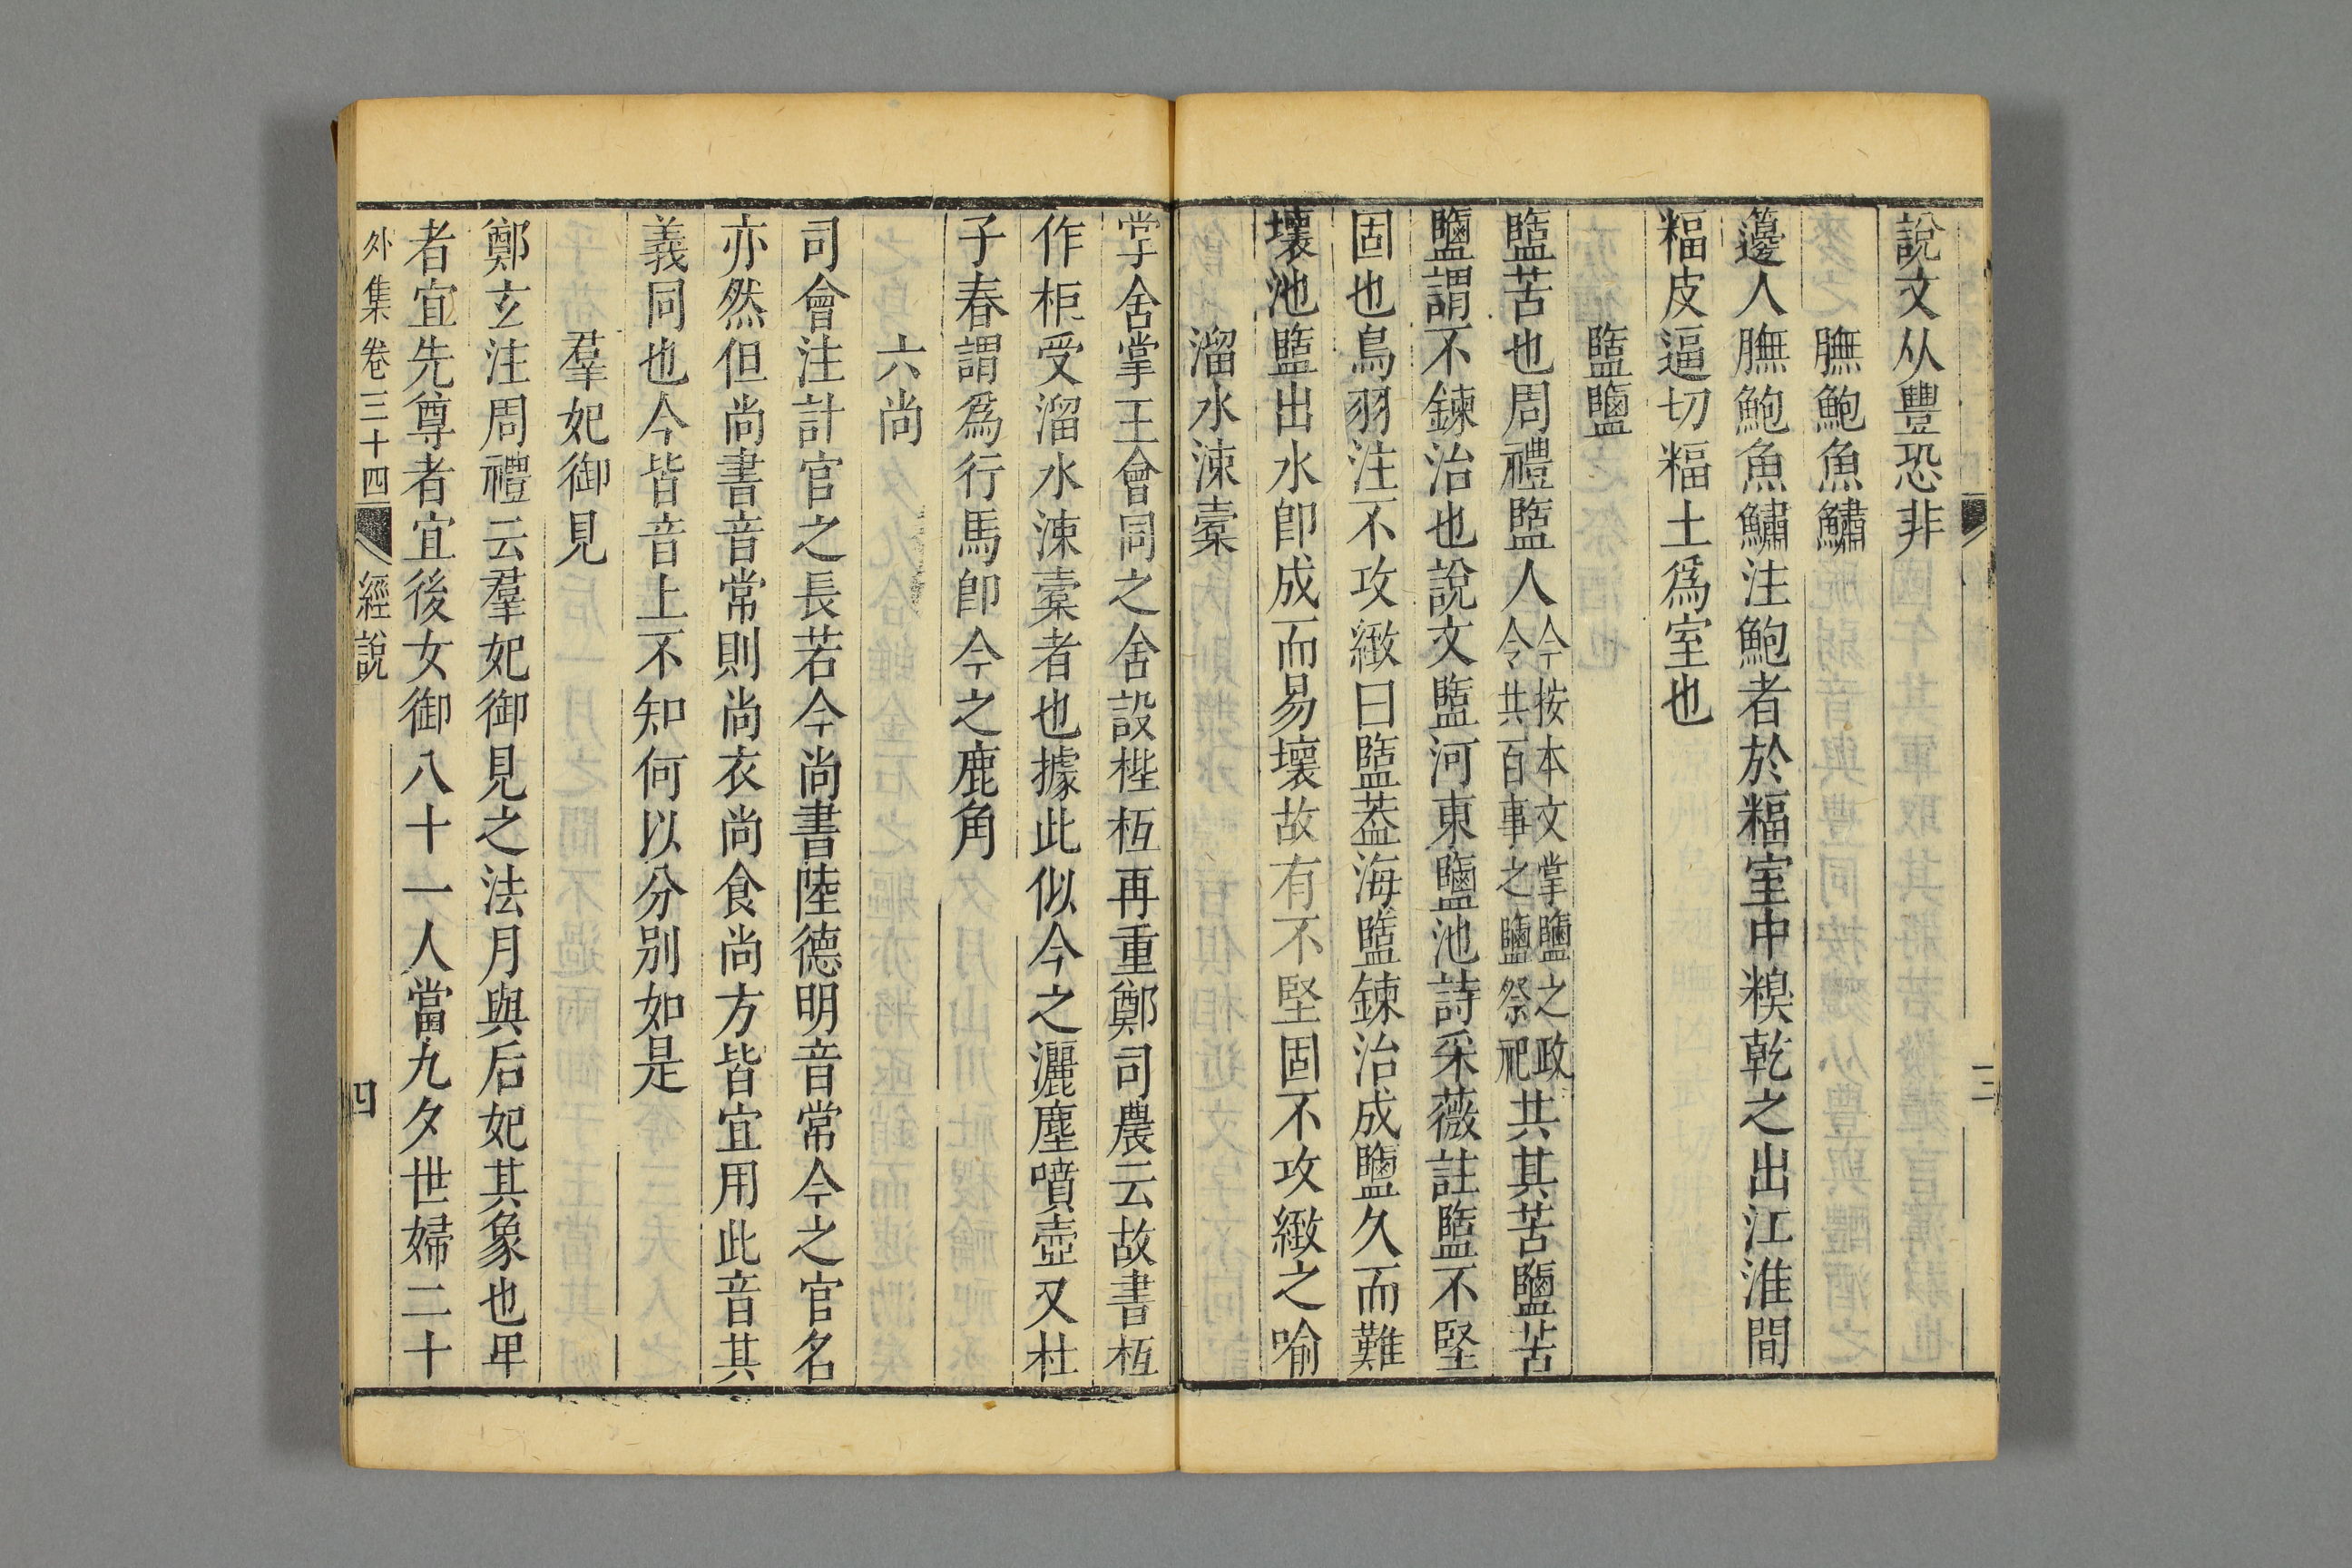 三
說文从豐恐非
膴鮑魚鱐
籩人膴鮑魚鱐注鮑者於糒室中糗乾之出江淮間
糒皮逼切糒土爲室也
盬鹽
盬苦也周禮盬人今按本文掌鹽之政令共百事之鹽祭祀共其苦鹽苦
鹽謂不鍊治也說文盬河東鹽池詩采薇註盬不堅
固也鳥羽注不攻緻曰盬葢海盬鍊治成鹽久而難
壞池盬出水卽成而易壞故有不堅固不攻緻之喻
溜水涑櫜
掌舍掌王會同之舍設梐枑再重鄭司農云故書枑
作柜受溜水涑櫜者也據此似今之灑塵噴壺又杜
子春謂爲行馬卽今之鹿角
六尚
司會注計官之長若今尚書陸德明音常今之官名
亦然但尚書音常則尚衣尚食尚方皆宜用此音其
義同也今皆音上不知何以分別如是
羣妃御見
鄭玄注周禮云羣妃御見之法月與后妃其象也卑
者宜先尊者宜後女御八十一人當九夕世婦二十
外集卷三十四 經說 四